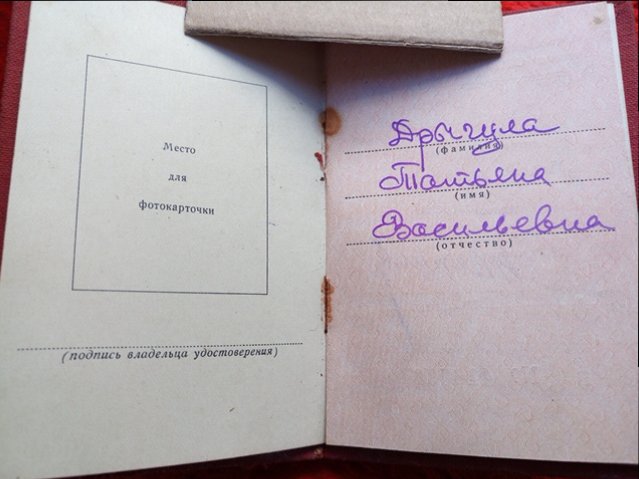 Место
для
фотокарточки
(подпись владельца удостоверения)
Дрыгула
(фамилия)
Татьяна
(имя)
Васильевна
(отчество)